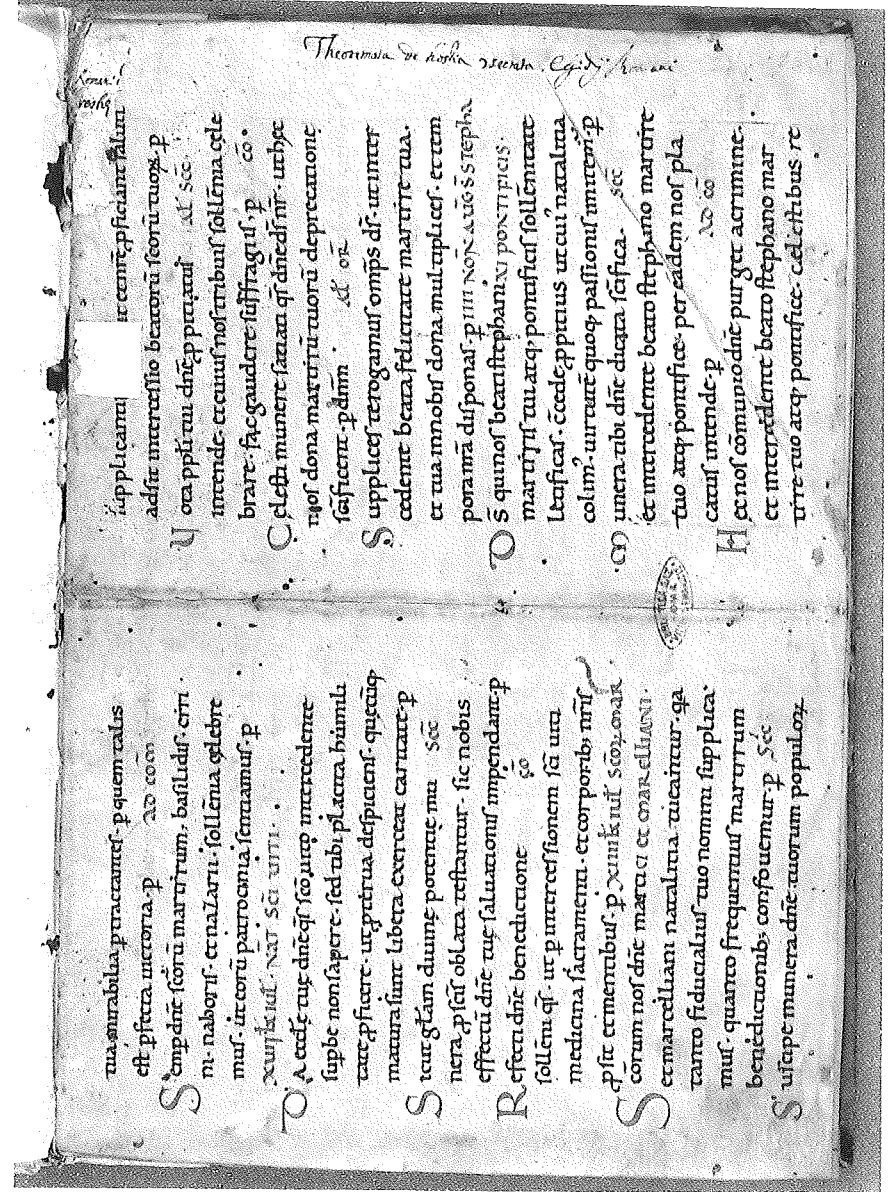 Theoremata de hostia 2secrata. Egidij Romani
tua mirabilia ptractantes· p quem talis
est pfecta uictoria· p AD COM̄
Semp dn̄e scorū martirum, basilidis· cirini
ni· naboris· et nazarii· sollēnia celebre
mus· ut eorū patrocinia sentiamus· p
NAT̄ SC̄I UITI·
DA eccłę tuę dn̄e q̄s sc̄o uito intercedente
supbe non sapere· sed tibi placita humili
tate pficere· ut praua despiciens· quęcūq;
matura sunt libera exerceat caritate· p
Sicut głam diuinę potentię mu SEC̄
nera p sc̄is oblata testantur· sic nobis
effectū dn̄e tuę saluationis impendant· p
Refecti dn̄e benedictione CO
sollēni q̄s· ut p intercessionem sc̄i uiti
medicina sacramenti· et corporib; nr̄is
psit et mentibus· p SC̄OR MAR
Sc̄orum nos dn̄e marci et marcelliani MARCI ET MARCELLIANI·
et marcelliani natalitia tueantur· q̄a
tanto fiducialius tuo nomini supplica
mus· quanto frequentius martirum
benedictionib; confouemur· p SEC̄
Suscipe munera dn̄e tuorum populoꝝ
adsit intercessio beatorū sc̄orū tuoꝝ· p
Uota ppłi tui dn̄e ppitiatus AL SEC̄
intende· et cuius nos tribuis sollēnia cele
brare· fac gaudere suffragiis· p CŌ·
Celesti munere satiati q̄s dn̄e ds̄ nr̄· ut hęc
nos dona martirū tuorū deprecatione
sc̄ificent· p dn̄m AL OR̄
Supplices te rogamus omp̄s ds̄· ut inter
cedente beata felicitate martire tua·
et tua in nobis dona multiplices· et tem
pora nr̄a disponas· p IIII NON̄ AUḠ S̄ STEPHA
DS̄ qui nos beati stephani NI PONTIFICIS·
martiris tui atq; pontificis sollēnitate
letificas· c̄cede ppitius ut cui' natalitia
colim'· uirtutē quoq; passionis imitem̄· p
Munera tibi dn̄e dicata sc̄ifica· SEC̄
et intercedente beato stephano martire
tuo atq; pontifice· per eadem nos pla
catus intende· p AD CŌ
Hec nos cōmunio dn̄e purget a crimine·
et intercedente beato stephano mar
tire tuo atq; pontifice· cælestibus re